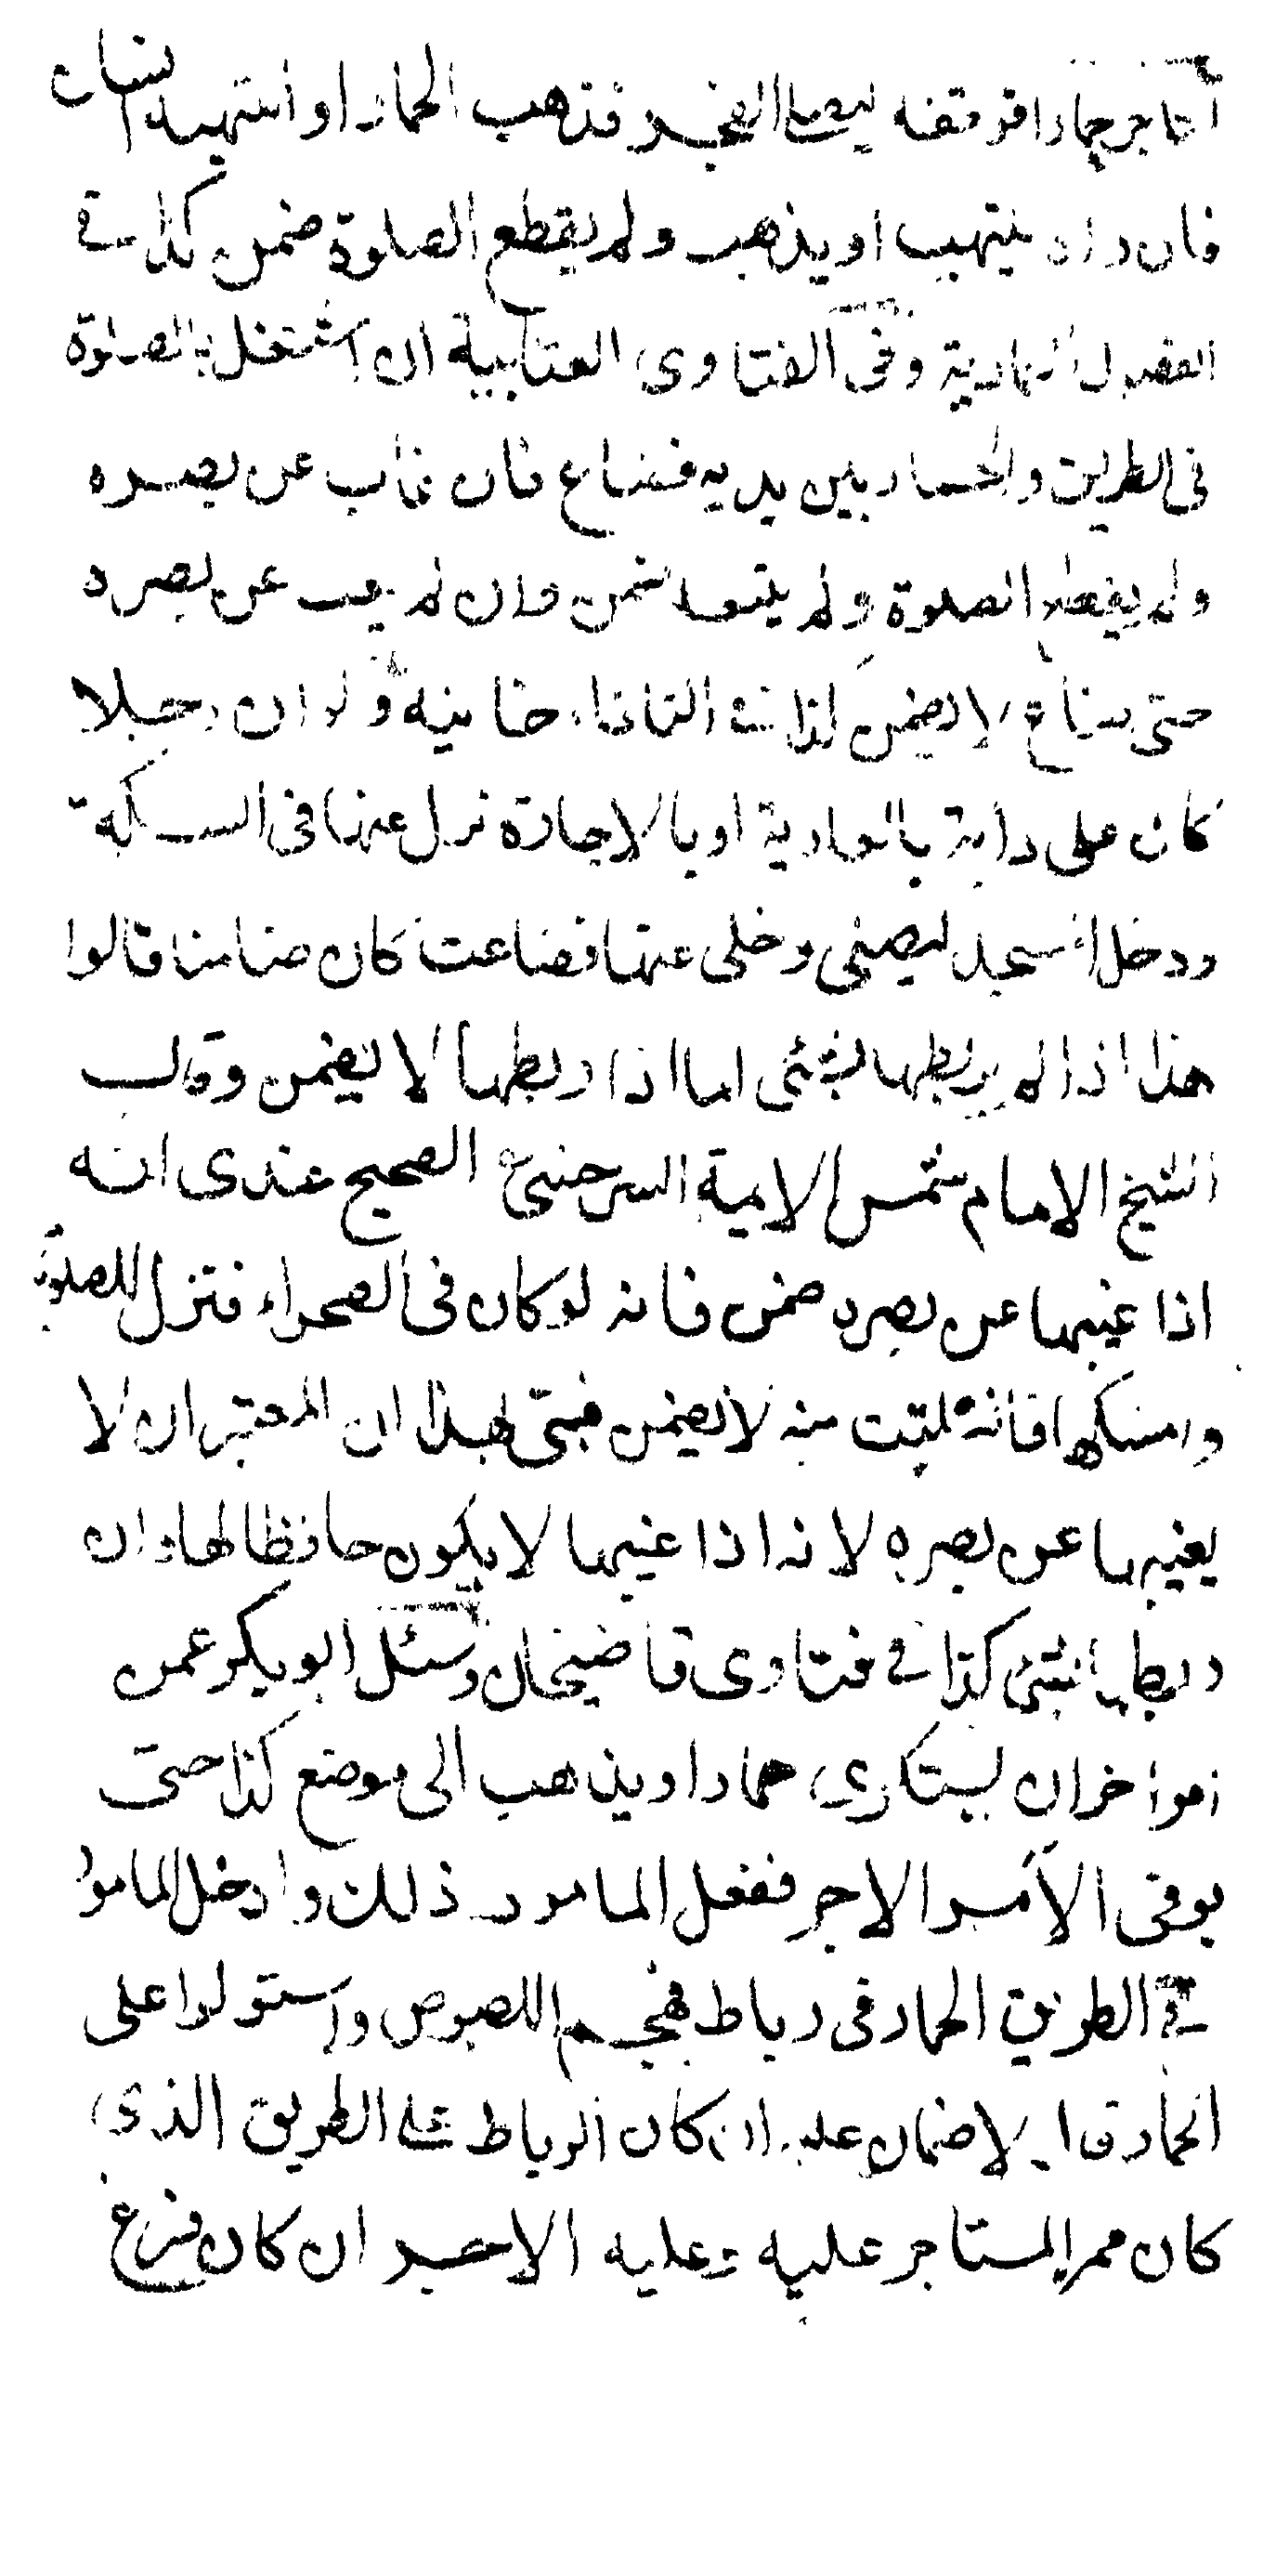 استاجر حمارا فوقفه ليصلى الفجر فذهب الحمار او انتهبه انسان
فان راه ينتهب او يذهب ولم يقطع الصلوة ضمن كذا في
الفصول العمادية وفى الفتاوى العتابية ان اشتغل بالصلوة
فى الطريق والحمار بين يديه فضاع فان غاب عن بصره
ولم يقطع الصلوة ولم يتبعه ضمن وان لم يغب عن بصره
حتى ضاع لا يضمن كذا في التاتارخانيه ولو ان رجلا
كان على دابة بالعارية او بالاجارة نزل عنها فى السكة
ودخل المسجد ليصلى وخلى عنها فضاعت كان ضامنا قالوا
هذا اذا لم يربطها بشئ اما اذا ربطها لا يضمن وقال
الشيخ الامام شمس الايمة السرخسى الصحيح عندى انه
اذا غيبها عن بصره ضمن فانه لو كان فى الصحراء فنزل للصلوة
وامسكها فانفلتت منه لا يضمن فتبين بهذا ان المعتبر ان لا
يغيبها عن بصره لانه اذا غيبها لا يكون حافظا لها وان
ربطها بشئ كذا في فتاوى قاضيخان وسئل ابو بكر عمن
امر اخر ان يستكرى حمارا ويذهب الى موضع كذا حتى
يوفى الآمر الاجر ففعل المامور ذلك وادخل المامور
في الطريق الحمار فى رباط فهجم اللصوص واستولوا على
الحمار قال لا ضمان عليه ان كان الرباط على الطريق الذى
كان ممر المستاجر عليه وعليه الاجر ان كان فرغ